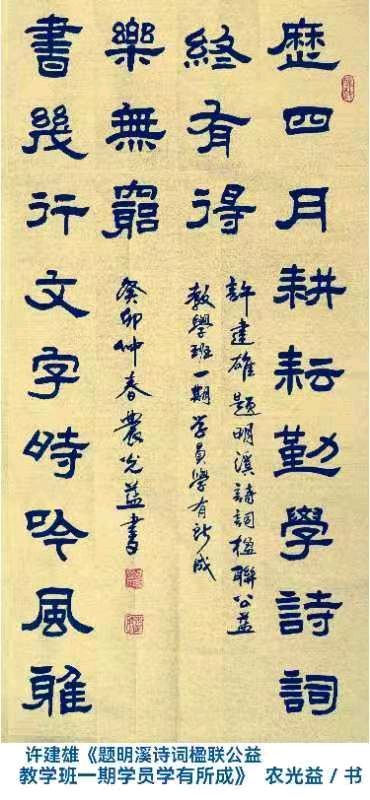 歷四月耕耘勤學詩詞
終有得
許建雄題明溪詩詞楹聯公益
教學班一期学員學有所成
書幾行文字時吟風雅
樂無窮
癸卯仲春農光益書
许建雄《题明溪诗词楹联公益
教学班一期学员学有所成》 农光益 / 书